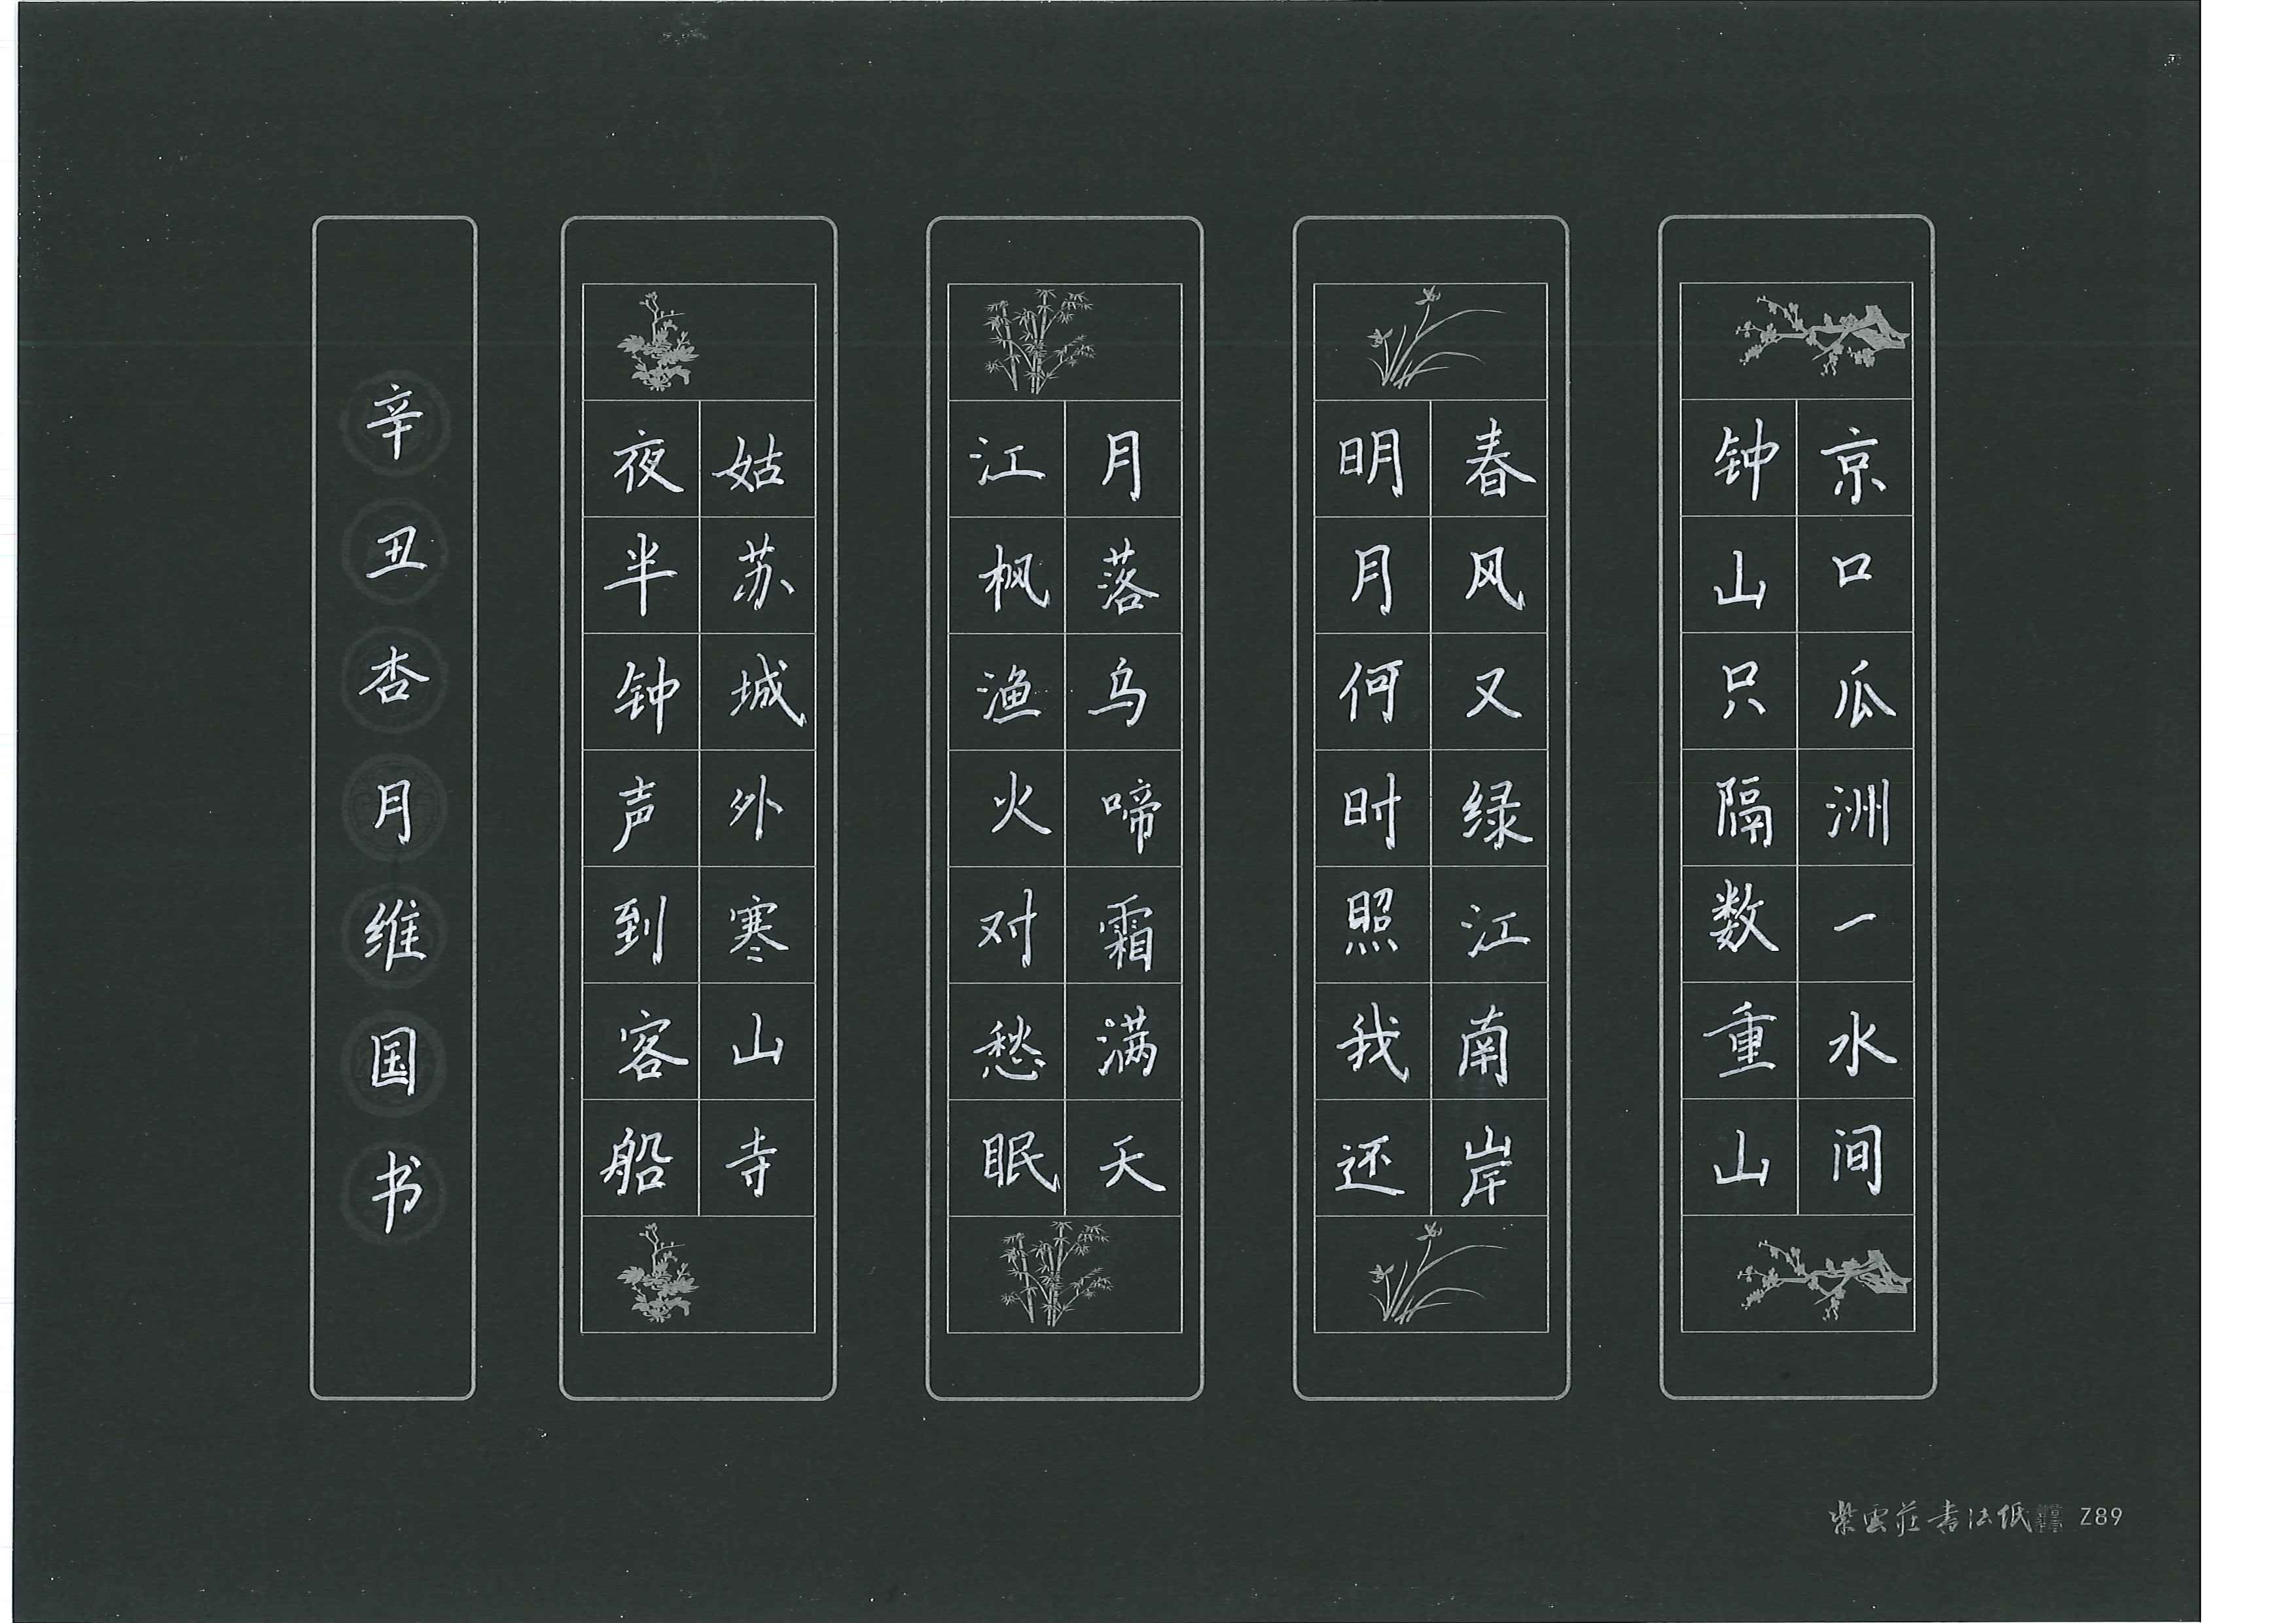 京口瓜洲一水间
钟山只隔数重山
春风又绿江南岸
明月何时照我还
月落乌啼霜满天
江枫渔火对愁眠
姑苏城外寒山寺
夜半钟声到客船
辛丑杏月维国书
紫雲莊書法纸 Z89